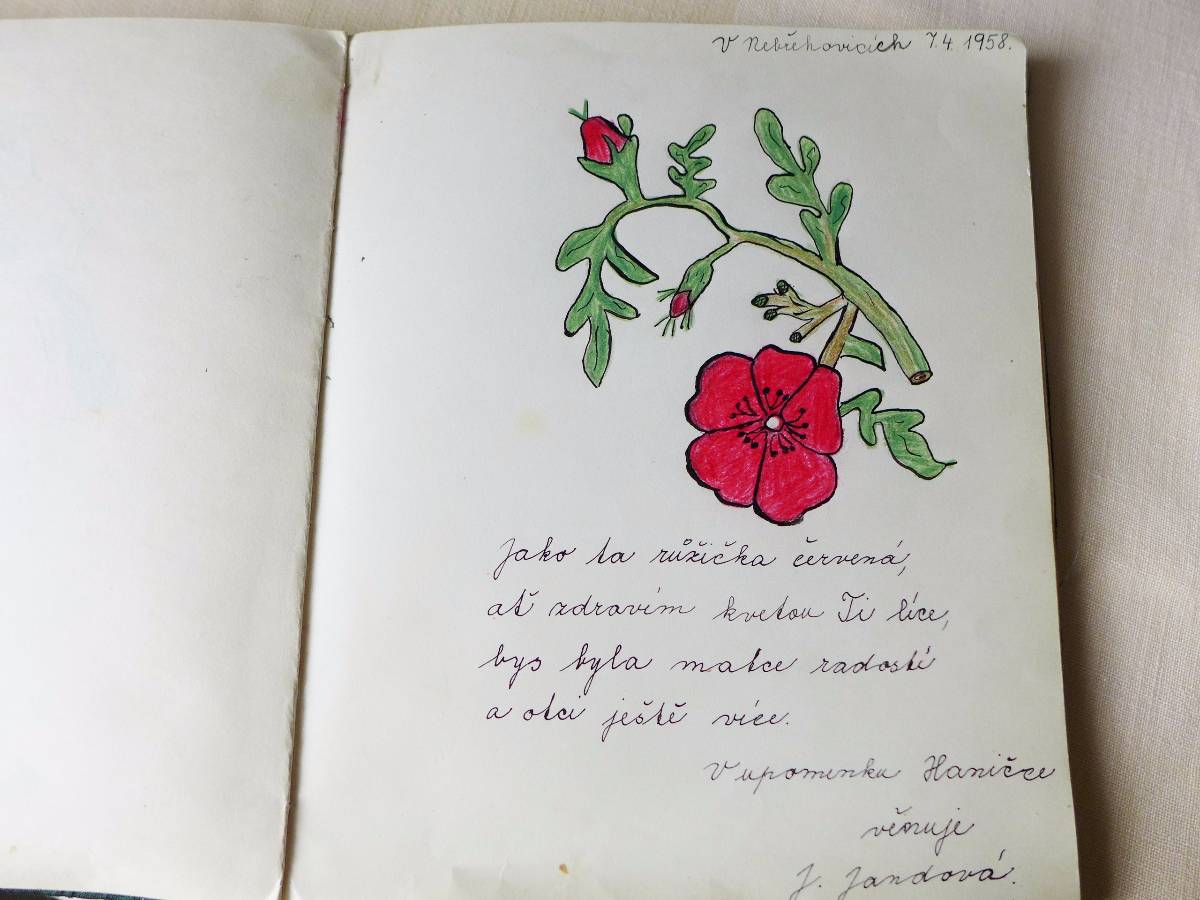 V Nebřehovicích 7.4. 1958.
Jako ta růžička červená,
ať zdravím kvetou Ti líce,
bys byla matce radostí
a otci ještě více.
V upomínku Haničce
věnuje
J. Jandová.